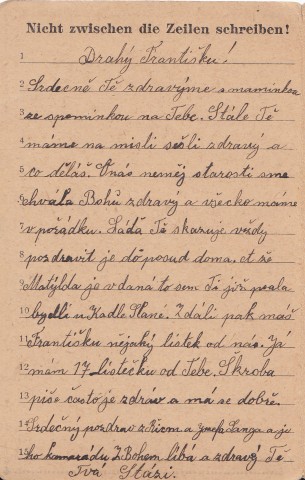 Nicht zwischen die Zeilen schreiben!
1 Drahý Františku!
2 Srdecně Tě zdravýme s maminkou
3 ze spominkou na Tebe. Stále Tě
4 máme na misli zdravý a
5 co děláš. O nás neměj starosti sme
6 chvála Bohů zdravý a všecko máme
7 v pořádku. Láďa Tě skazuje vždy
8 pozdravit je doposud doma. ct že
9 Matylda je v daná to sem Ti již psala
10 bydlí u Kadle Plané. Zdáli pak máš
11 Františku nějaký lístek od nás. Já
12 mám 17 lístečku od Tebe. Škroba
13 píše často je zdráv a má se dobře.
14 Srdečný pozdrav a je
15 ho kamarádu Z Bohem líbá a zdravý Tě
Tvá Stázi.